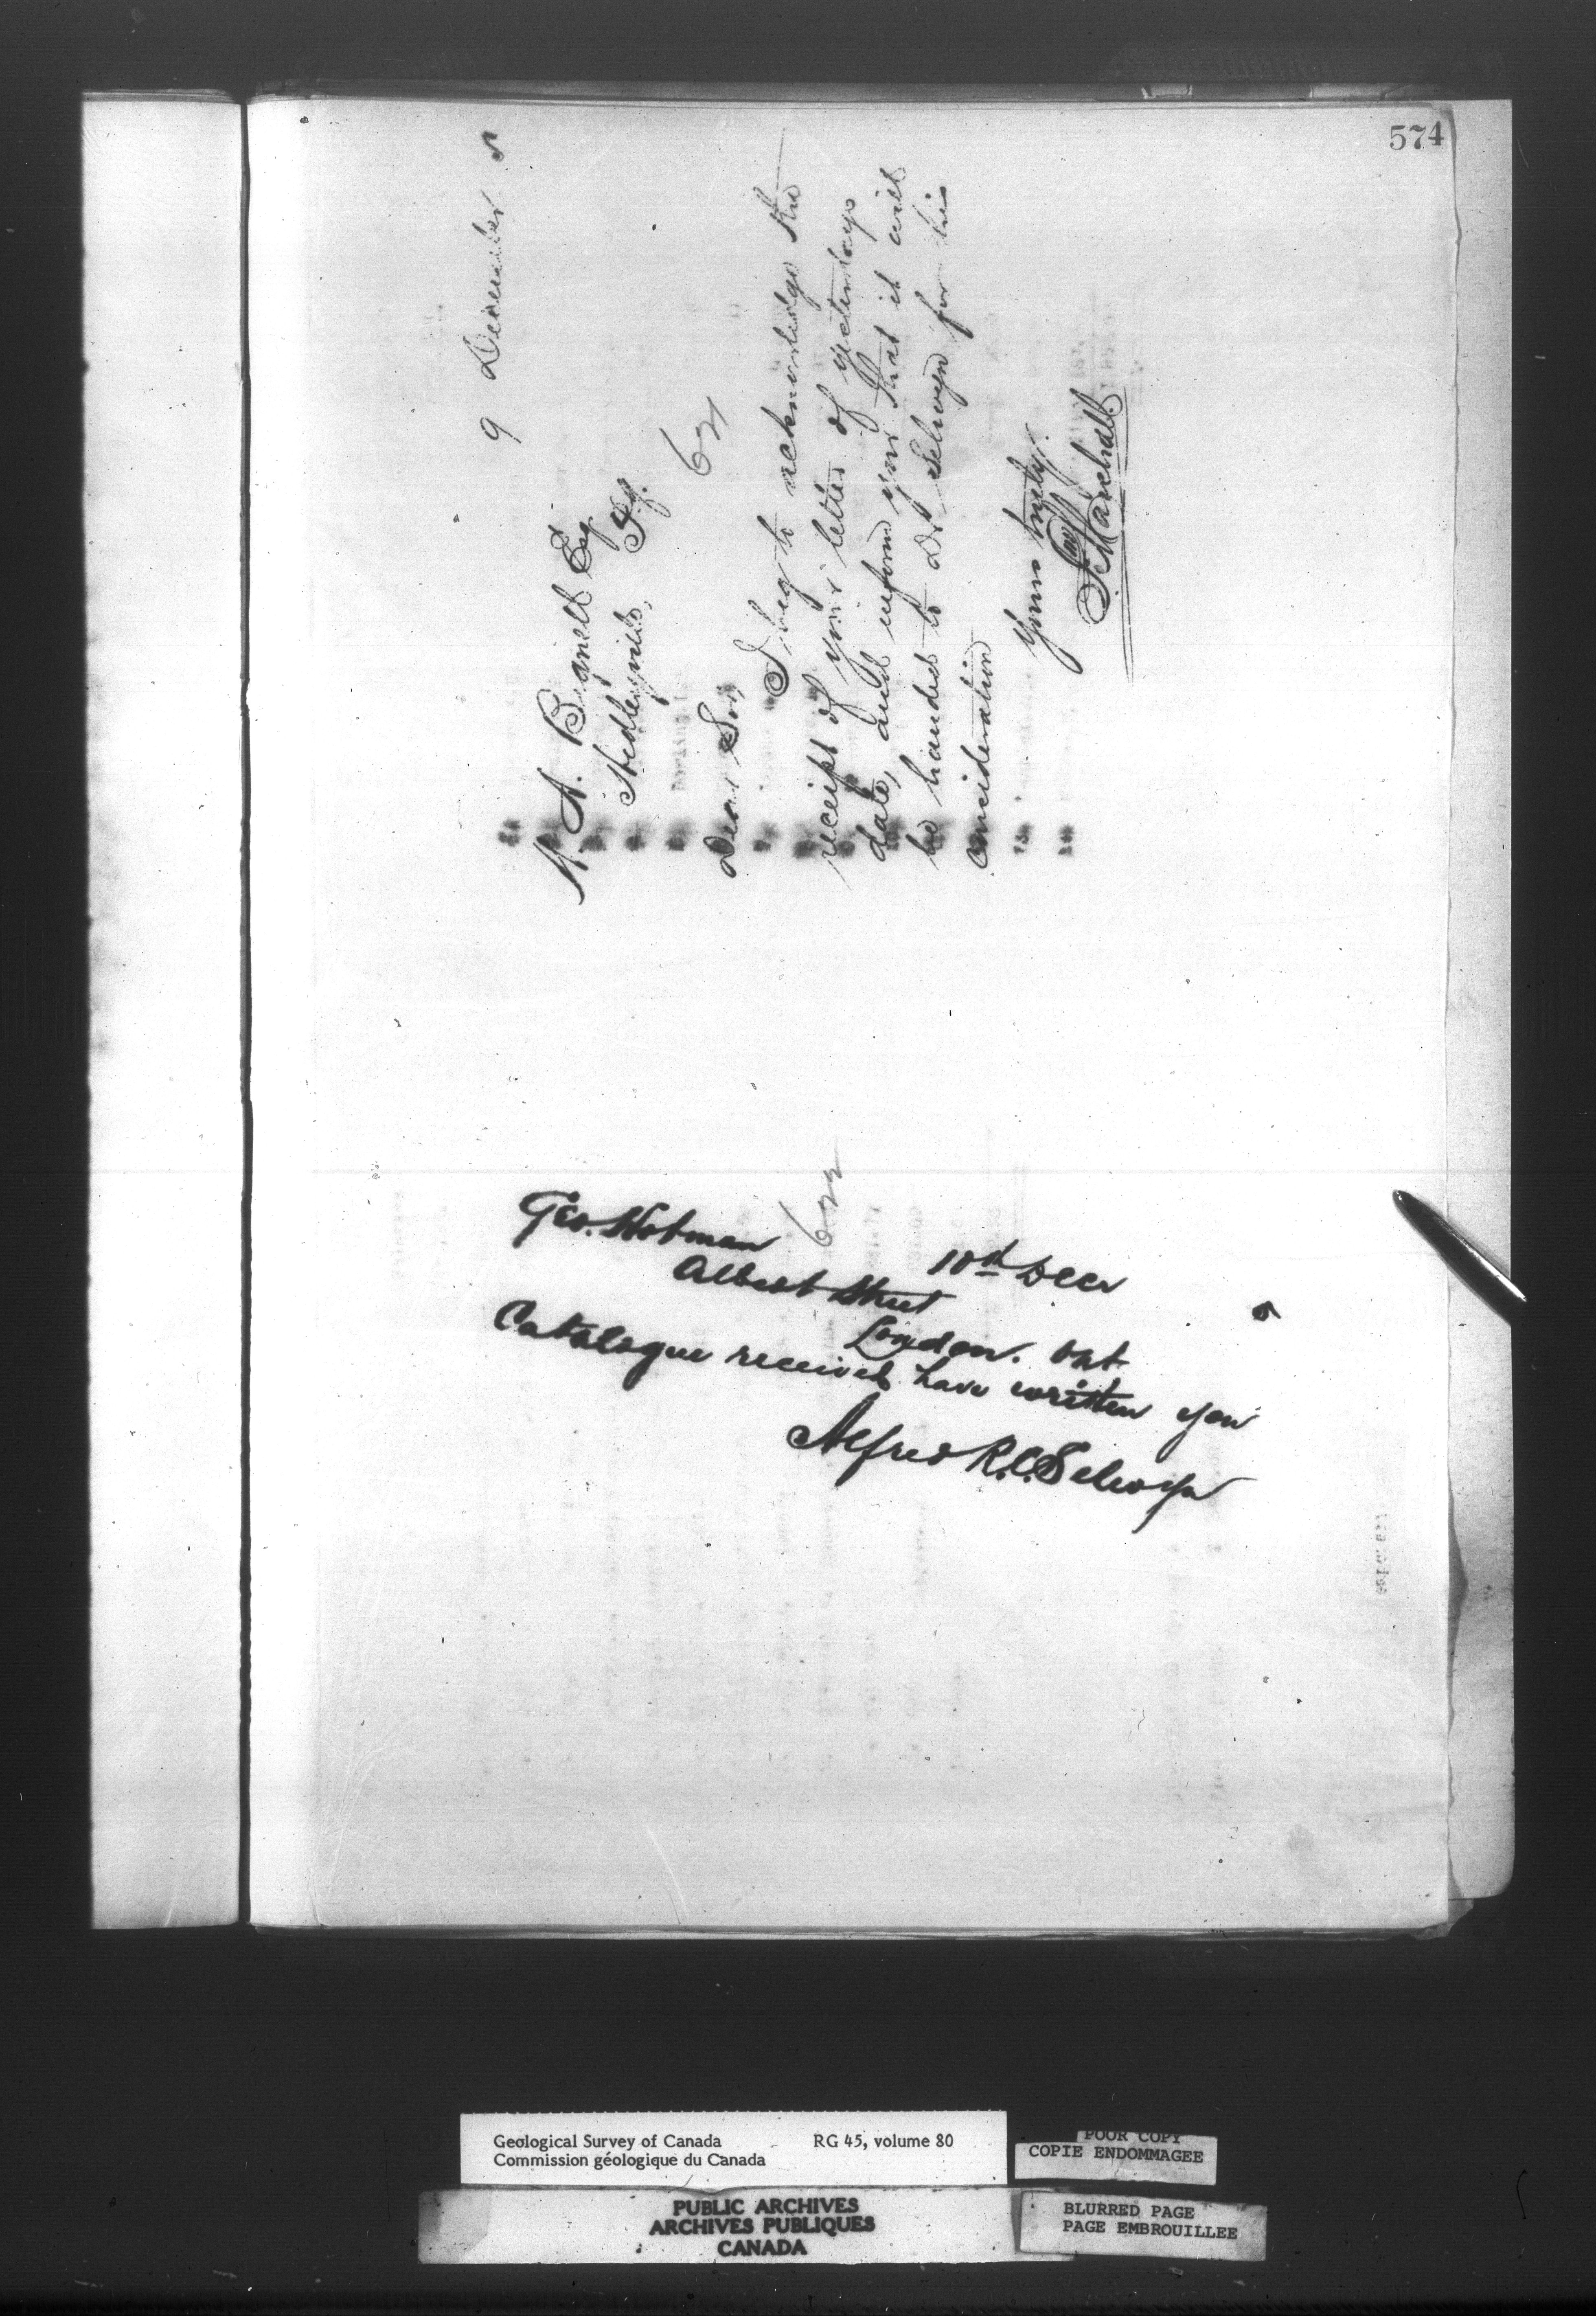 574
9 December 5
A. Bignell Esq
Stedleyville, P.Q.
621
Dear Sir,
I beg to acknowledge the
receipt of your letter of yesterdays
date, and inform you that it will
be handed to Dr Selwyn for his
consideration
Yours truly.
Marshall
622
Geo. Hotman
10th Decr
5
Albert Street
London. Ont.
Catalogue received have written you
Alfred R.C. Selwyn
Geological Survey of Canada RG 45, volume 80
Commission géologique du Canada
POOR COPY
COPIE ENDOMMAGEE
PUBLIC ARCHIVES
ARCHIVES PUBLIQUES
CANADA
BLURRED PAGE
PAGE EMBROUILLEE